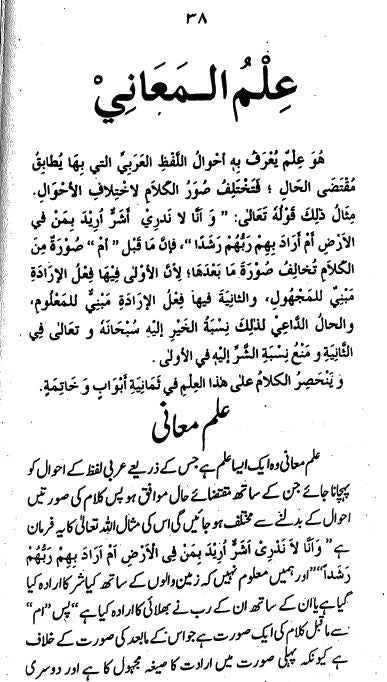 ٣٨
عِلْمُ الْمَعَانِيْ
هُوَ عِلْمٌ يُعْرَفُ بِهِ أَحْوَالُ اللَّفْظِ العَرَبِيِّ التي بِهَا يُطَابِقُ
مُقْتَضَى الحَالِ ؛ فَتَخْتَلِفُ صُوَرُ الكَلَامِ لِاخْتِلَافِ الأَحْوَالِ.
مِثَالُ ذلِكَ قَوْلُهُ تَعَالٰى: "وَ أَنَّا لَا نَدْرِيْ أَشَرٌّ أُرِيْدَ بِمَنْ في
الْأَرْضِ أَمْ أَرَادَ بِهِمْ رَبُّهُمْ رَشَدًا"، فَإِنَّ مَا قَبْلَ "أَمْ" صُوْرَةٌ مِنَ
الكَلَامِ تُخَالِفُ صُوْرَةَ مَا بَعْدَهَا؛ لِأَنَّ الأُوْلٰى فِيْهَا فِعْلُ الإِرَادَةِ
مَبْنِيٌّ لِلمَجْهُوْلِ، والثَّانِيَةَ فيها فِعْلُ الإِرَادَةِ مَبْنِيٌّ لِلمَعْلُوْمِ،
والحَالُ الدَّاعِيْ لِذٰلِكَ نِسْبَةُ الخَيْرِ إِلَيْهِ سُبْحَانَهُ وَ تعالٰى فِي
الثَّانِيَةِ وَ مَنْعُ نِسْبَةِ الشَّرِّ إِلَيْهِ في الأُولٰى .
وَ يَنْحَصِرُ الكَلامُ عَلٰى هٰذَا العِلْمِ فِي ثَمَانِيَةِ أَبْوَابٍ وَ خَاتِمَةٍ.
علم معانی
علم معانی وہ ایک ایسا علم ہے جس کے ذریعے عربی لفظ کے احوال کو
پہچانا جائے جن کے ساتھ مقتضائے حال موافق ہو پس کلام کی صورتیں
احوال کے بدلنے سے مختلف ہو جائیں گی اس کی مثال اللہ تعالیٰ کا یہ فرمان
ہے "وَأَنَّا لَا نَدْرِىْ أَشَرٌّ أُرِيْدَ بِمَنْ فِى الْأَرْضِ أَمْ أَرَادَ بِهِمْ رَبُّهُمْ
رَشَدًا" "اور ہمیں معلوم نہیں کہ زمین والوں کے ساتھ کیا شر کا ارادہ کیا
گیا ہے یا ان کے ساتھ ان کے رب نے بھلائی کا ارادہ کیا ہے" پس "ام"
سے ماقبل کلام کی ایک صورت ہے جو اس کے مابعد کی صورت کے خلاف
ہے کیونکہ پہلی صورت میں ارادت کا صیغہ مجہول کا ہے اور دوسری